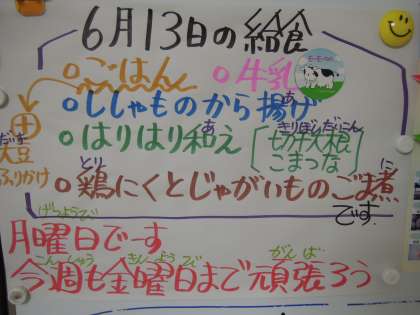 6月13日の給食
ごはん
牛乳
だいず
大豆
ふりかけ
ししゃものから揚げ
あ
はりはり和え
あ
きりぼしだいこん
切干大根
こまつな
とり
に
鶏にくとじゃがいものごま煮
です
げつようび
月曜日でーす
こんしゅう きんようび がんば
今週も金曜日まで頑張ろう